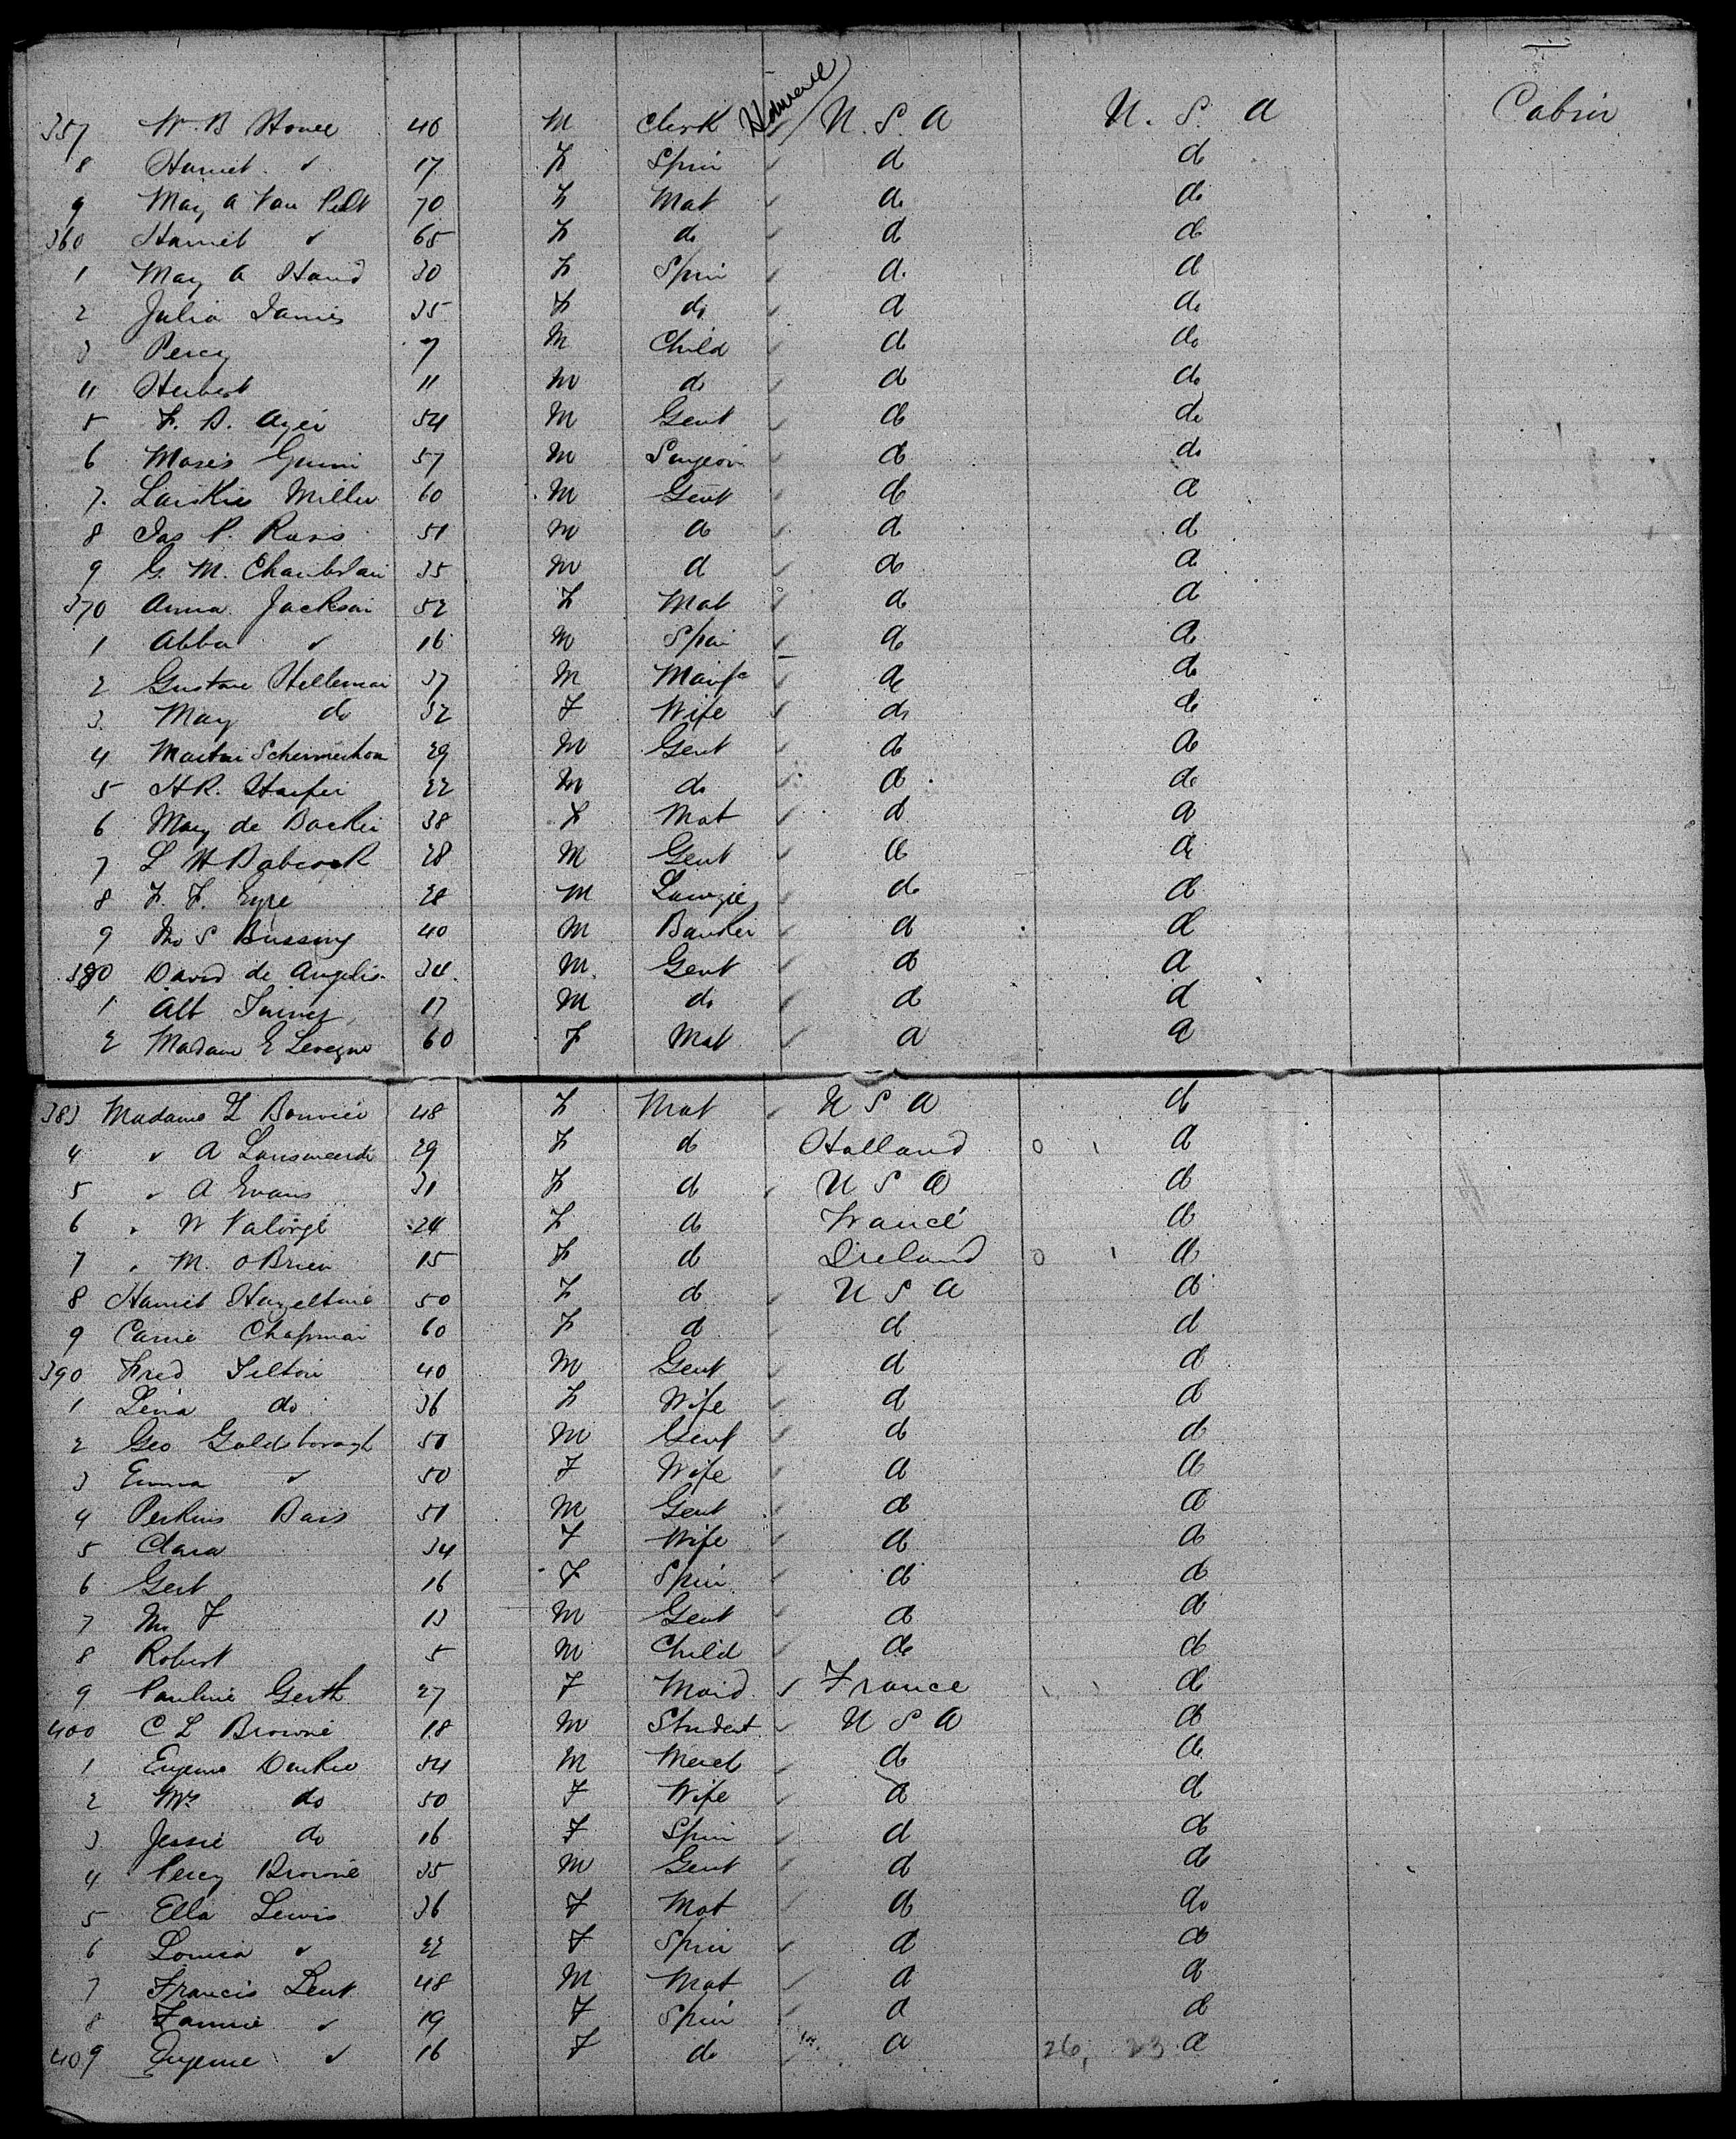 357 W. B Howel 40 M Clerk U. S. A U. S. A Cabin
8 Harriet " 17 F Spin do do
9 May A Van Pelt 70 F Mat do do
360 Harriet " 65 F do do do
1 May A Hand 30 F Spin do do
2 Julia James 35 F do do do
3 Percy 7 M Child do do
4 Herbert 11 M do do do
5 F. B. Ayer 54 M Gent do do
6 Moses Gunn 57 M Surgeon do do
7 Miller 60 M Gent do do
8 Jas P. Ross 51 M do do do
9 G. M. Chamberlain 35 M do do do
370 Anna Jackson 52 F Mat do do
1 Abba " 16 M Spin do do
2 Gustave Helleman 37 M Manfc do do
3 May do 32 F Wife do do
4 Martin Schermerhorn 29 M Gent do do
5 H R. Harper 22 M do do do
6 May de Backer 38 F Mat do do
7 L H Babcock 28 M Gent do do
8 F. F. Eyre 28 M Lawyer do do
9 Thos S Bussing 40 M Banker do do
380 David de Angelis 34 M Gent do do
1 Alb 17 M do do do
2 Madame E 60 F Mat do do
383 Madame L Bouvier 48 F Mat U S A do
4 " A 29 F do Holland do
5 " A Evans 31 F do U S A do
6 " N Valorge 24 F do France do
7 " M. O Brien 15 F do Ireland do
8 Harriet Hazeltine 50 F do U S A do
9 Carrie Chapman 60 F do do do
390 Fred Tilton 40 M Gent do do
1 Lena do 36 F Wife do do
2 Geo Goldsborough 50 M Gent do do
3 Emma " 50 F Wife do do
4 Perkins Bass 51 M Gent do do
5 Clara 34 F Wife do do
6 Gert 16 F Spin do do
7 F 13 M Gent do do
8 Robert 5 M Child do do
9 Pauline Gerth 27 F Maid France do
400 C L Browne 18 M Student U S A do
1 Eugene 54 M Merch do do
2 Mrs do 50 F Wife do do
3 Jessie do 16 F Spin do do
4 Percy Browne 35 M Gent do do
5 Ella Lewis 36 F Mat do do
6 Louisa " 22 F Spin do do
7 Francis Lent 48 M Mat do do
8 Fannie " 19 F Spin do do
409 Eugenie " 16 F do do 26, 23 do